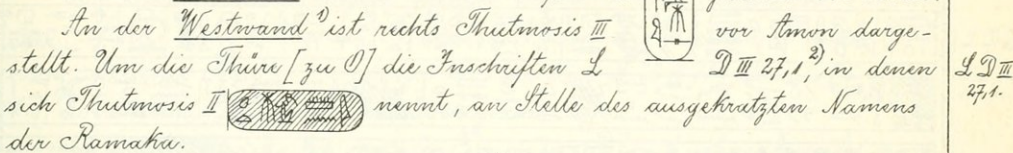 An der Westwand 1) ist rechts Thutmosis III vor Amon darge-
stellt. Um die Thüre [zu O] die Inschriften L D III 27,1, 2) in denen
sich Thutmosis II nennt, an Stelle des ausgekratzten Namens
der Ramaka.
L D III
27,1.